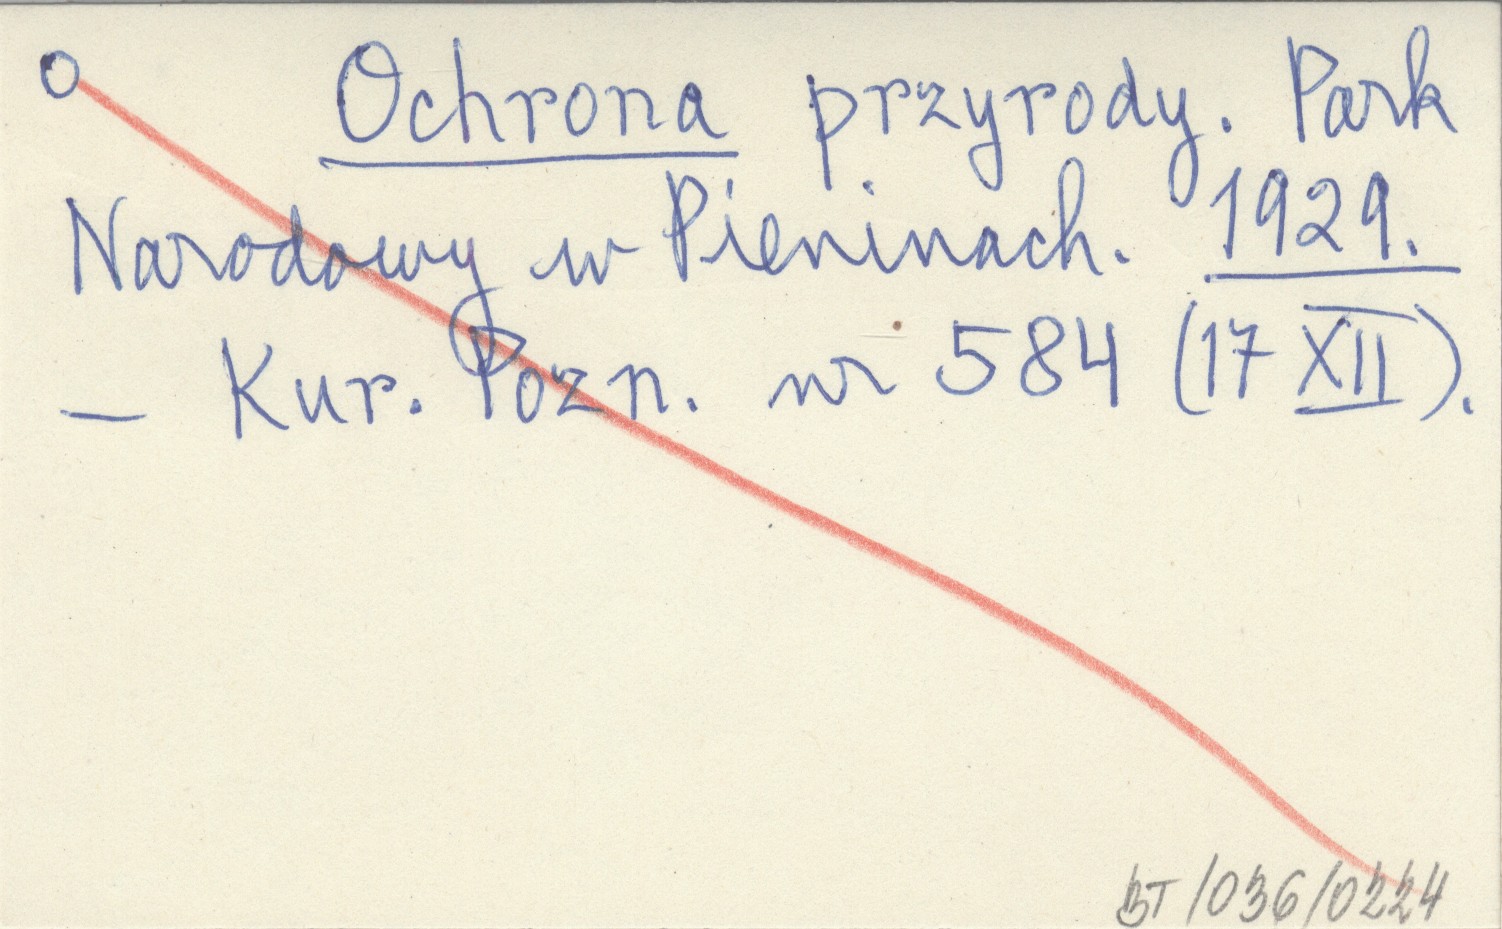 O Ochrona przyrody. Park
Narodowy w Pieninach. 1929.
— Kur. Pozn. nr 584 (17 XII).
BT/036/0224